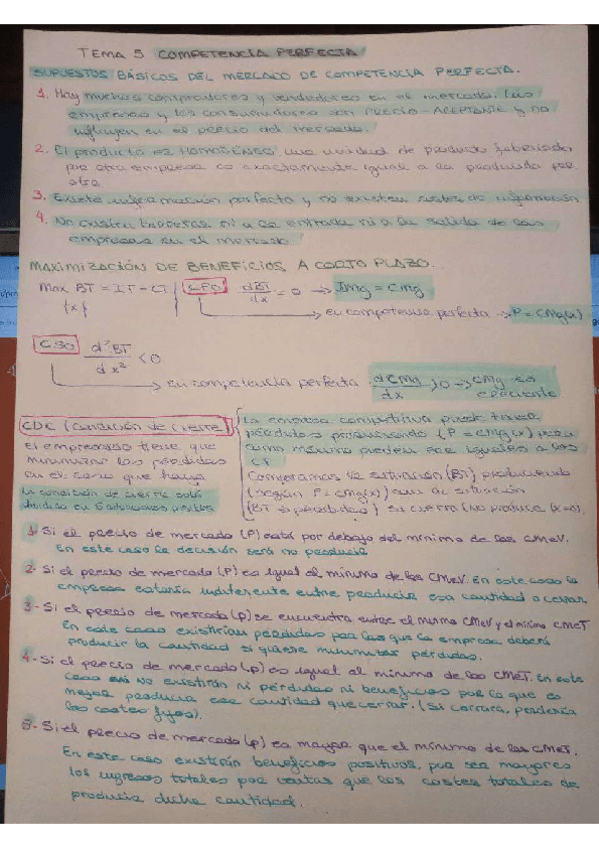 TEMA 5 COMPETENCIA PERFECTA
SUPUESTOS BÁSICOS DEL MERCADO DE COMPETENCIA PERFECTA.
1. Hay muchos compradores y vendedores en el mercado. Las
empresas y los consumidores son PRECIO-ACEPTANTE y no
influyen en el precio del mercado.
2. El producto es HOMOGÉNEO, una unidad de producto fabricado
por otra empresa es exactamente igual a la producida por
otra
3. Existe información perfecta y no existen costes de información
4. No existen barreras ni a la entrada ni a la salida de las
empresas en el mercado
MAXIMIZACIÓN DE BENEFICIOS A CORTO PLAZO.
Max BT = IT - CT | CPO dBT/dx = 0 → IMg = CMg
{x} → en competencia perfecta → P = CMg(x)
CSO d²BT/dx² < 0
→ en competencia perfecta dCMg/dx > 0 → CMg es
creciente
CDC (Condición de cierre)
El empresario tiene que
minimizar las pérdidas
en el caso que haya
La condición de cierre está
en 5 posibles
La empresa competitiva puede tener
pérdidas produciendo (P = CMg(x)) pero
como máximo pueden ser iguales a los
CF
Comparamos la situación (BT) produciendo
(según P = CMg(x)) con la situación
(BT → pérdidas) si cierra (no produce x=0).
1- Si el precio de mercado (P) está por debajo del mínimo de los CMeV.
En este caso la decisión será no producir
2- Si el precio de mercado (P) es igual al mínimo de los CMeV. En este caso la
empresa estaría indiferente entre producir esa cantidad o cerrar
3- Si el precio de mercado (p) se encuentra entre el mínimo CMeV y el mínimo CMeT
En este caso existirían pérdidas por las que la empresa deberá
producir la cantidad si quiere minimizar pérdidas.
4- Si el precio de mercado (p) es igual al mínimo de los CMeT. En este
caso no existirán ni pérdidas ni beneficios por lo que es
mejor producir esa cantidad que cerrar. (Si cerrara, perdería
los costes fijos).
5- Si el precio de mercado (p) es mayor que el mínimo de los CMeT.
En este caso existirán beneficios positivos, pues son mayores
los ingresos totales por ventas que los costes totales de
producir dicha cantidad.